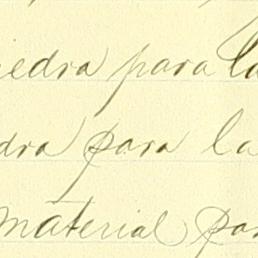 iedra para la
dra para la
material par